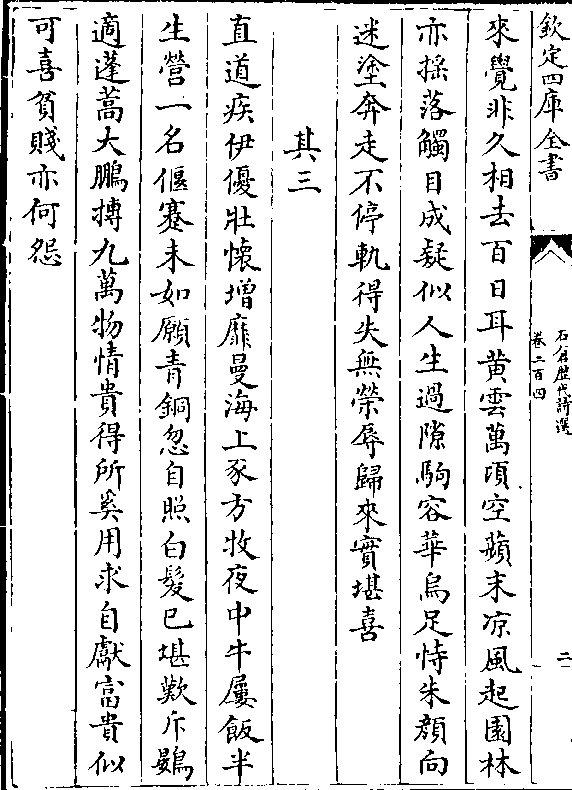 欽定四庫全書
石倉歷代詩選
卷二百四
二
來覺非久相去百日耳黄雲萬頃空蘋末凉風起園林
亦揺落觸目成疑似人生過隙駒容華烏足恃朱顔向
迷塗奔走不停軌得失無榮辱歸來實堪喜
其三
直道疾伊優壯懐増靡曼海上豕方牧夜中牛屢飯半
生營一名偃蹇未如願青銅忽自照白髮已堪歎斥鷃
適蓬蒿大鵬摶九萬物情貴得所奚用求自獻富貴似
可喜貧賤亦何怨